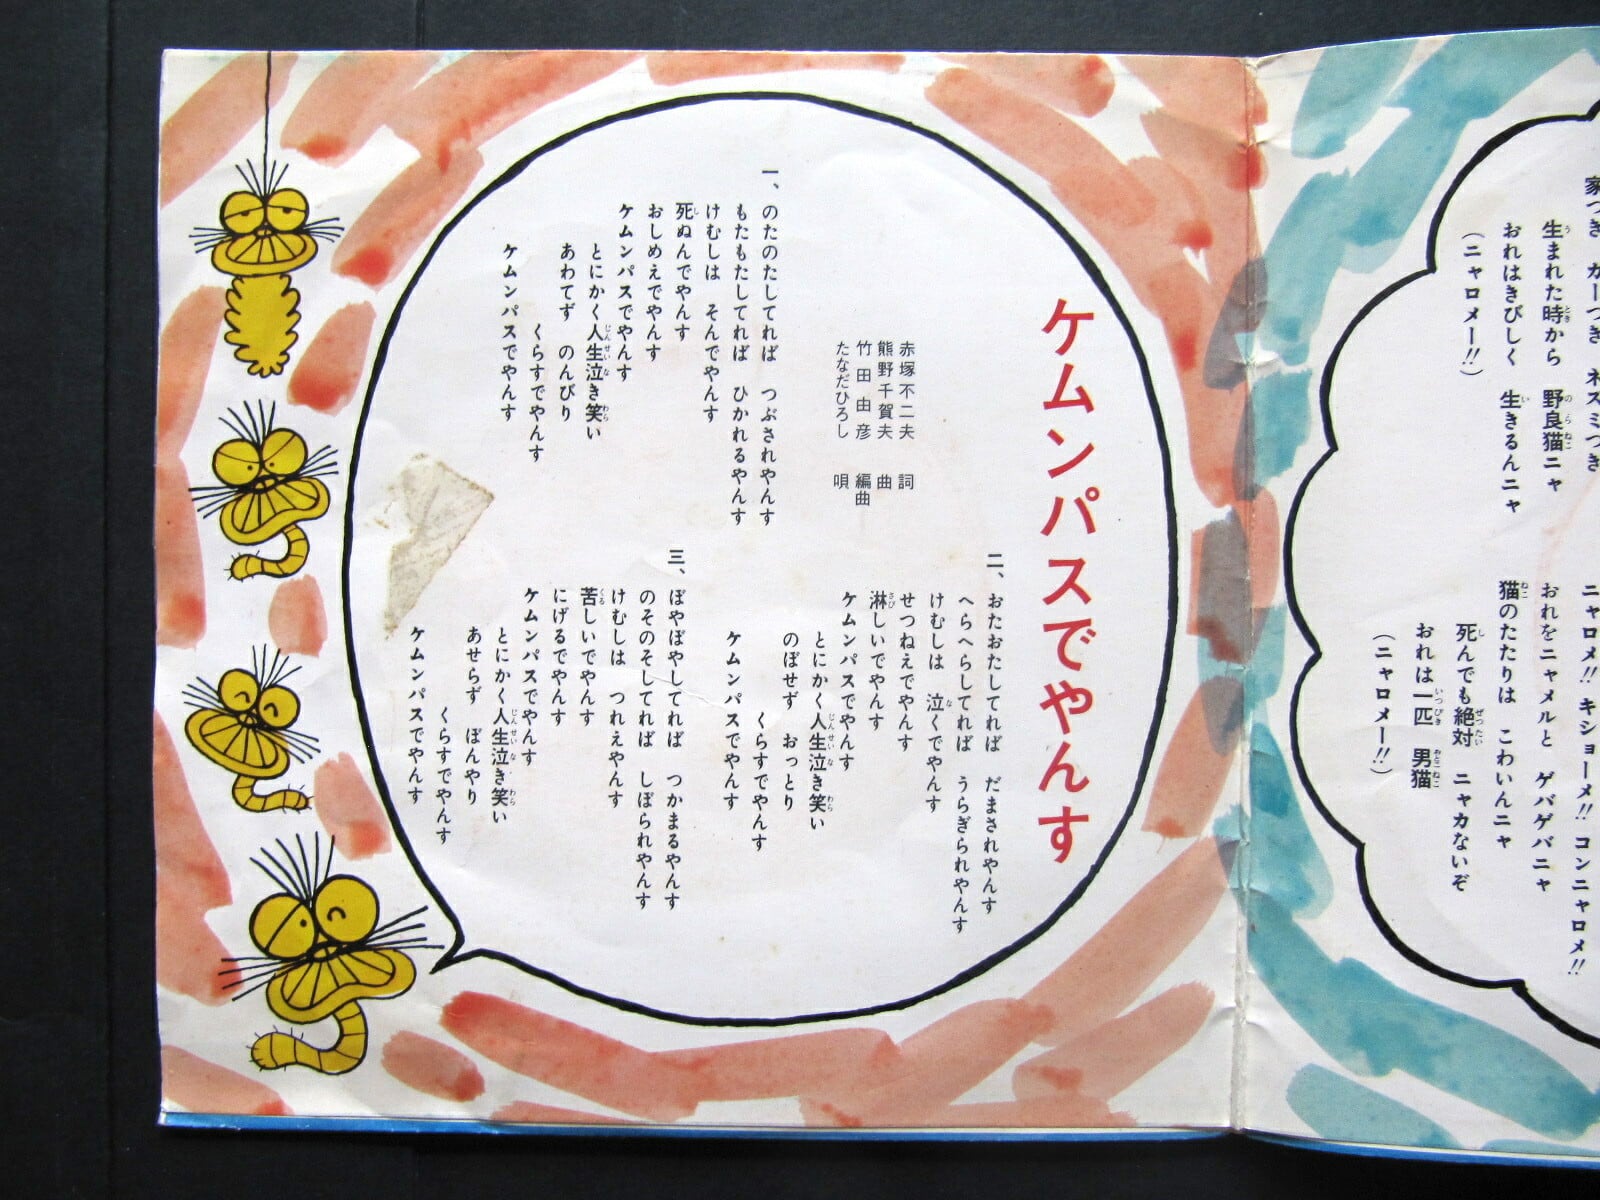 家つき カーつき ネズミつき
生まれた時から 野良猫ニャ
おれはきびしく 生きるんニャ
(ニャロメー!!)
ニャロメ!! キショーメ!! コンニャロメ!!
おれをニャメルと ゲバゲバニャ
猫のたたりは こわいんニャ
死んでも絶対 ニャカないぞ
おれは一匹 男猫
(ニャロメー!!)
ケムンパスでやんす
赤塚不二夫 詞
熊野千賀夫 曲
竹田由彦 編曲
たなだひろし 唄
一、のたのたしてれば つぶされやんす
もたもたしてれば ひかれるやんす
けむしは そんでやんす
死ぬんでやんす
おしめえでやんす
ケムンパスでやんす
とにかく人生泣き笑い
あわてず のんびり
くらすでやんす
ケムンパスでやんす
二、おたおたしてれば だまされやんす
へらへらしてれば うらぎられやんす
けむしは 泣くでやんす
せつねえでやんす
淋しいでやんす
ケムンパスでやんす
とにかく人生泣き笑い
のぼせず おっとり
くらすでやんす
ケムンパスでやんす
三、ぼやぼやしてれば つかまるやんす
のそのそしてれば しぼられやんす
けむしは つれえやんす
苦しいでやんす
にげるでやんす
ケムンパスでやんす
とにかく人生泣き笑い
あせらず ぼんやり
くらすでやんす
ケムンパスでやんす